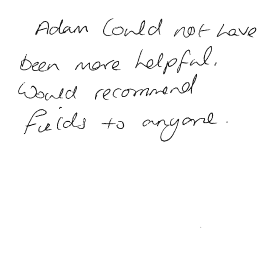 Adam Could not have
been more helpful.
Would recommend
Fields to anyone.